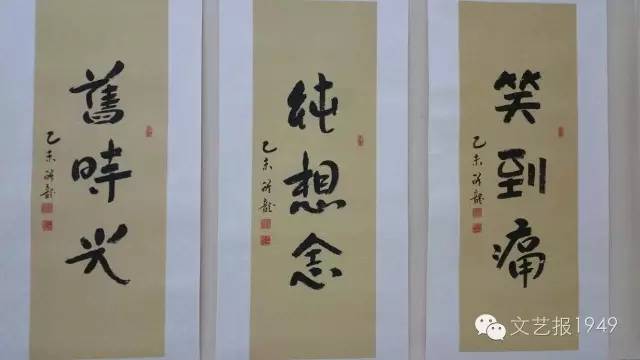 舊時光
乙未
純想念
乙未
笑到痛
乙未
文艺报1949